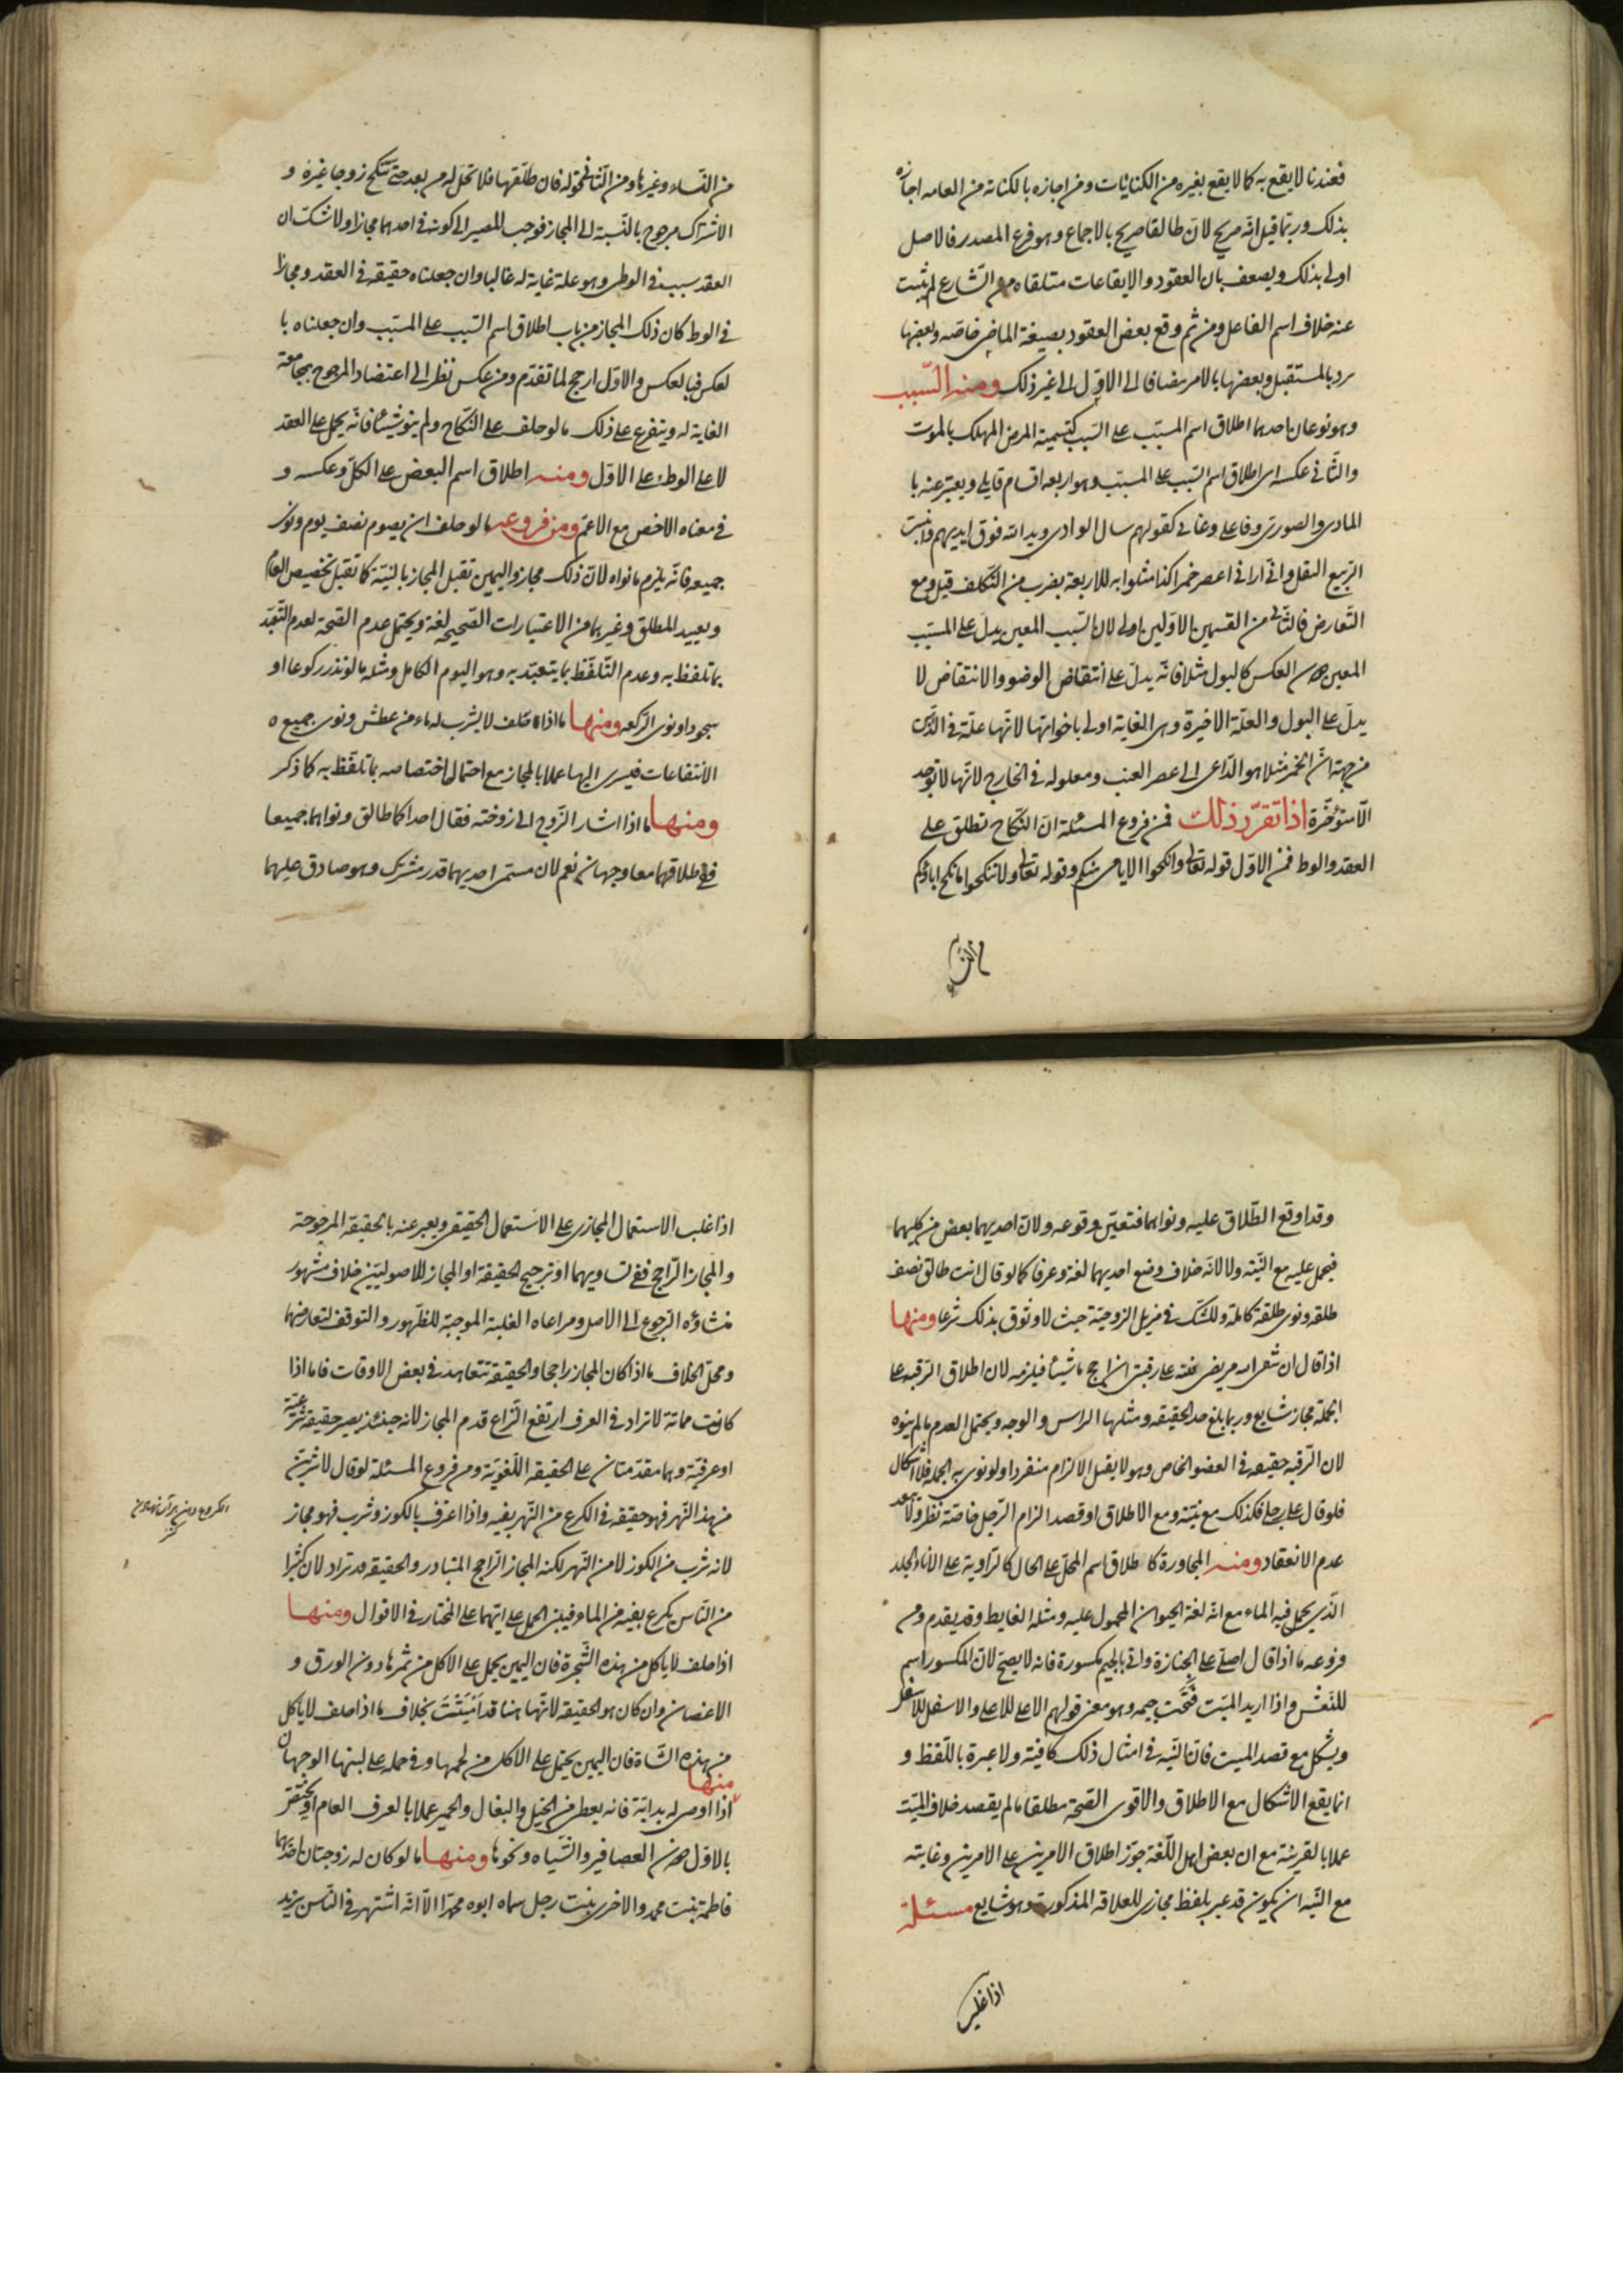 فعندنا لا يقع به كما لا يقع بغيره من الكنايات ومن اجازه بالكناية من العامه اجازه
بذلك وربما قيل انّه صريح لانّ طالقا صريح بالاجماع وهو فرع المصدر فالاصل
اولى بذلك ويضعف بان العقود والايقاعات متلقاه من الشّارع لم يثبت
عنه خلاف اسم الفاعل ومن ثم وقع بعض العقود بصيغة الماضى خاصّه وبعضها
بالمستقبل وبعضها بالامر مضافا الى الاوّل الى غير ذلك ومنه السّبب
وهو نوعان احدهما اطلاق اسم المسبّب على السّبب كتسمية المرض المهلك بالموت
والثّانى عكسه اى اطلاق اسم السّبب على المسبّب وهو اربعه اقسام قابلى ويعبّر عنه با
المادى والصورى وفاعلى وغائى كقولهم سال الوادى ويد الله فوق ايديهم وانبت
الرّبيع البقل وانّى ارانى اعصر خمرا كذا مثلوا به للاربعة بضرب من التّكلف قيل ومع
التّعارض فالثّانى من القسمين الاوّلين اولى لان السّبب المعين يدلّ على المسبّب
المعين دون العكس كالبول مثلا فانّه يدلّ على انتقاض الوضوء والانتقاض لا
يدلّ على البول والعلّة الاخيرة وهى الغاية اولى باخواتها لانّها علّة فى الذّهن
من جهة انّ الخمر مثلا هو الدّاعى الى عصر العنب ومعلوله فى الخارج لانّها لا توجد
الّا متؤخّرة اذا تقرّر ذلك فمن فروع المسئلة انّ النّكاح تطلق على
العقد والوطى فمن الاوّل قوله تعالى وانكحوا الايامى منكم وقوله تعالى ولا تنكحوا ما نكح اباؤكم
من النّساء وغيرها ومن الثّانى قوله فان طلّقها فلا تحلّ له من بعد حتّى تنكح زوجا غيره و
الاشتراك مرجوح بالنّسبة الى المجاز فوجب المصير الى كونه فى احدهما مجازا ولا شكّ ان
العقد سبب فى الوطى وهو علة غاية له غالبا وان جعلناه حقيقة فى العقد ومجازا
فى الوطى كان ذلك المجاز من باب اطلاق اسم السّبب على المسبّب وان جعلناه با
لعكس فبالعكس والاوّل ارجح لما تقدّم ومن عكس نظر الى اعتضاد المرجوح بمجامعة
الغاية له ويتفرع على ذلك ما لو حلف على النّكاح ولم ينو شيئا فانّه يحمل على العقد
لا على الوطى على الاوّل ومنه اطلاق اسم البعض على الكلّ وعكسه و
فى معناه الاخص مع الاعمّ ومن فروعه ما لو حلف ان يصوم نصف يوم ونوى
جميعه فانّه يلزم ما نواه لانّ ذلك مجاز واليمين تقبل المجاز بالنيّة كما تقبل تخصيص العام
وتقييد المطلق وغيرهما من الاعتبارات الصّحيحة لغة ويحتمل عدم الصّحة لعدم التّعبّد
بما تلفظ به وعدم التّلفّظ بما يتعبّد به وهو اليوم الكامل ومثله ما لو نذر ركوعا او
سجودا ونوى الرّكعه ومنها ما اذا حلف لا يشرب له ماء من عطش ونوى جميع
الانتفاعات فيسرى اليها عملا بالمجاز مع احتمال اختصاصه بما تلفّظ به كما ذكر
ومنها ما اذا اشار الزّوج الى زوجته فقال احداكما طالق ونواهما جميعا
ففى طلاقهما معا وجهان نعم لان مسمى احديهما قدر مشترك وهو صادق عليهما
وقد اوقع الطّلاق عليه ونواهما فتعيّن وقوعه ولانّ احديهما بعض من كليهما
فيحمل عليه مع النّيّة ولا لانّه خلاف وضع احديهما لغة وعرفا كما لو قال انت طالق نصف
طلقه ونوى طلقة كاملة وللشّكّ فى مزيل الزوجيّة حيث لا وثوق بذلك شرعا ومنها
اذا قال ان شفى الله مريضى فلله على رقبتى ان احج ماشيئا فيلزمه لان اطلاق الرّقبه على
الجملة مجاز شايع وربما بلغ حدّ الحقيقه ومثلها الراس والوجه ويحتمل العدم ما لم ينوه
لان الرّقبه حقيقه فى العضو الخاص وهو لا يقبل الالزام منفردا ولو نوى به الجملة فلا اشكال
فلو قال على رجلى فكذلك مع نيّته ومع الاطلاق او قصد الزام الرّجل خاصّة نظر ولا يبعد
عدم الانعقاد ومنه المجاورة كاطلاق اسم المحلّ على الحال كالرّاوية على الاناء الجلد
الّذى يحمل فيه الماء مع انّه لغة الحيوان المحمول عليه ومثله الغايط وقد يقدم ومن
فروعه ما اذا قال اصلّى على الجِنازة واتى بالجيم مكسورة فانه لا يصحّ لانّ المكسور اسم
للنّعش واذا اريد الميّت فُتحت جيمه وهو معنى قولهم الاعلى للاعلى والاسفل للاسفل
ويشكل مع قصد الميت فانّ النّيّه فى امثال ذلك كافية ولا عبرة باللّفظ و
انما يقع الاشكال مع الاطلاق والاقوى الصّحة مطلقا ما لم يقصد خلاف الميّت
عملا بالقرينة مع ان بعض اهل اللّغة جوّز اطلاق الامرين على الامرين وغايته
مع النّيّه ان يكون قد عبر بلفظ مجازى للعلاقه المذكورة وهو شايع مسئلة
اذا غلب
اذا غلب الاستعمال المجازى على الاستعمال الحقيقى ويعبر عنه بالحقيقه المرجوحة
والمجاز الرّاجح ففى تساويهما او ترجيح الحقيقة او المجاز للاصوليّين خلاف مشهور
منشاؤه الرّجوع الى الاصل ومراعاه الغلبة الموجبة للظّهور والتوقف لتعارضهما
ومحلّ الخلاف ما اذا كان المجاز راجحا والحقيقة تتعاهد فى بعض الاوقات فاما اذا
كانت مماتة لا تراد فى العرف ارتفع النّزاع قدم المجاز لانه حينئذ يصير حقيقة شرعيّة
او عرفيّة وهما مقدّمتان على الحقيقة اللّغويّة ومن فروع المسئلة لو قال لاشربنّ
من هذا النّهر فهو حقيقه فى الكرع من النّهر بفيه واذا اغترف بالكوز وشرب فهو مجاز
لانه شرب من الكوز لا من النّهر لكنه المجاز الرّاجح المتبادر والحقيقة قد تراد لان كثيرا
من النّاس يكرع بفيه من الماء فيبنى الحمل على ايّهما على المختار فى الاقوال ومنها
اذا حلف لا ياكل من هذه الشّجرة فان اليمين يحمل على الاكل من ثمرها دون الورق و
الاغصان وان كان هو الحقيقة لانّها هنا قد اميتت بخلاف ما اذا حلف لا ياكل
من هذه الشّاة فان اليمين يحتمل على الاكل من لحمها وفى حمله على لبنها الوجهان
منها
اذا اوصى له بدابّة فانه يعطى من الخيل والبغال والحمير عملا بالعرف العام او يختصّ
بالاول دون العصافير والشّياه ونحوها ومنها ما لو كان له زوجتان احديهما
فاطمة بنت محمد والاخرى بنت رجل سماه ابوه محمّدا الّا انّه اشتهر فى النّاس بزيد